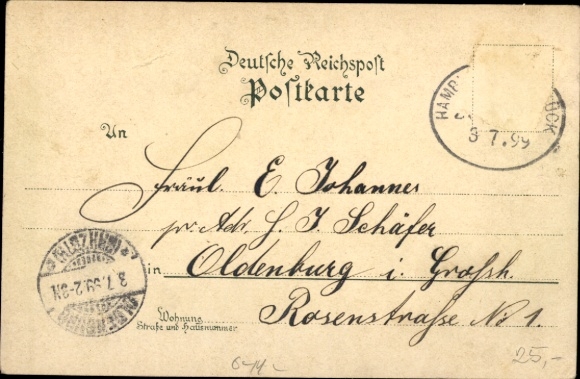 Deutsche Reichspost
Postkarte
HAMB UCK
3 7.99
An
Fräul. E. Johannes
pr. Adr. H. J. Schäfer
in Oldenburg i. Grossh.
Rosenstraße No 1.
Wohnung
Straße und Hausnummer
3.7.99.2-3N
25,-